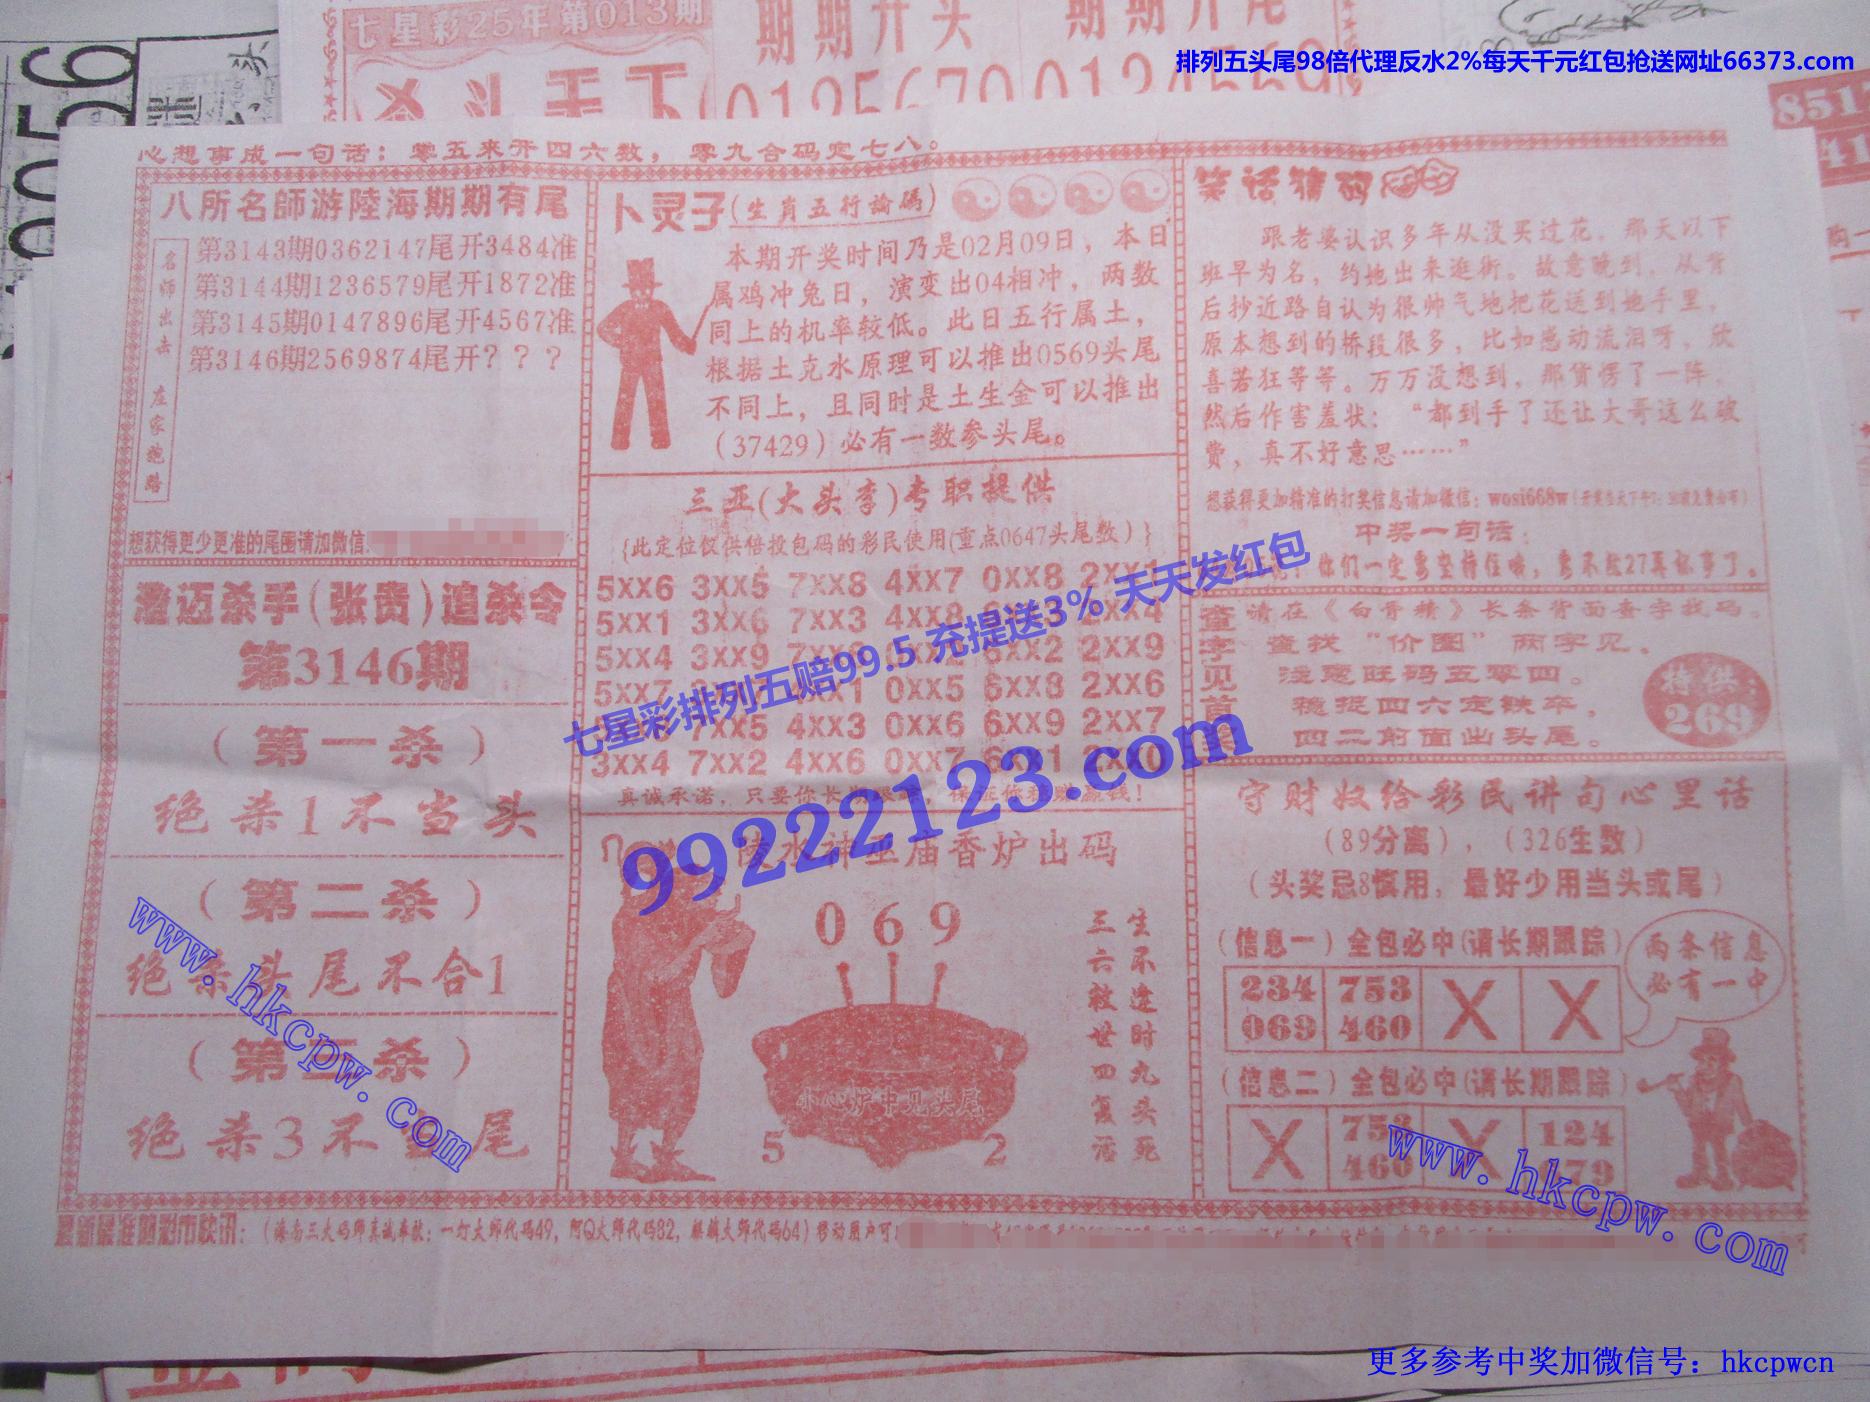 七星彩25年第013期
期期开头
期期开尾
排列五头尾98倍代理反水2%每天千元红包抢送网址66373.com
心想事成一句话：零五来开四六数，零九合码定七八。
八所名師游陸海期期有尾
名师出击 庄家跑路
第3143期0362147尾开3484准
第3144期1236579尾开1872准
第3145期0147896尾开4567准
第3146期2569874尾开？？？
想获得更少更准的尾围请加微信
澄迈杀手(张贵)追杀令
第3146期
（第一杀）
绝杀1不当头
（第二杀）
绝杀头尾不合1
（第三杀）
绝杀3不当尾
卜灵子(生肖五行論碼)
本期开奖时间乃是02月09日，本日
属鸡冲兔日，演变出04相冲，两数
同上的机率较低。此日五行属土，
根据土克水原理可以推出0569头尾
不同上，且同时是土生金可以推出
（37429）必有一数参头尾。
三亚(大头李)专职提供
{此定位仅供倍投包码的彩民使用(重点0647头尾数)}
5XX6 3XX5 7XX8 4XX7 0XX8 2XX1
5XX1 3XX6 7XX3 4XX8
5XX4 3XX9 2XX9
5XX7 0XX5 6XX8 2XX6
7XX5 4XX3 0XX6 6XX9 2XX7
3XX4 7XX2 4XX6 0XX7 6XX1 2XX0
真诚承诺，只要你长期跟踪，保证你稳赚赢钱！
陵水神巫庙香炉出码
069
小心炉中见头尾
5 2
生不逢时九头死
三六救世四复活
笑话猜码
跟老婆认识多年从没买过花，那天以下
班早为名，约她出来逛街。故意晚到，从背
后抄近路自认为很帅气地把花送到她手里，
原本想到的桥段很多，比如感动流泪呀，欣
喜若狂等等。万万没想到，那货愣了一阵，
然后作害羞状：“都到手了还让大哥这么破
费，真不好意思……”
想获得更加精准的打奖信息请加微信：wosi668w
中奖一句话：
你们一定要坚持住哦，
查字见首奖
请在《白骨精》长条背面查字找码。
查找“价图”两字见。
注意旺码五零四。
稳捉四六定铁卒，
四二前面出头尾。
特供：
269
守财奴给彩民讲句心里话
（89分离），（326生数）
（头奖忌8慎用，最好少用当头或尾）
（信息一）全包必中(请长期跟踪)
234 753 X X
069 460
（信息二）全包必中(请长期跟踪)
X 753 X 124
460 679
两条信息
必有一中
最新最准的彩市快讯：（海南三大码师真诚奉献：一灯大师代码49，阿Q大师代码82，麒麟大师代码64）移动用户可
七星彩排列五赔99.5 充提送3% 天天发红包
99222123.com
www.hkcpw.com
www.hkcpw.com
更多参考中奖加微信号：hkcpwcn